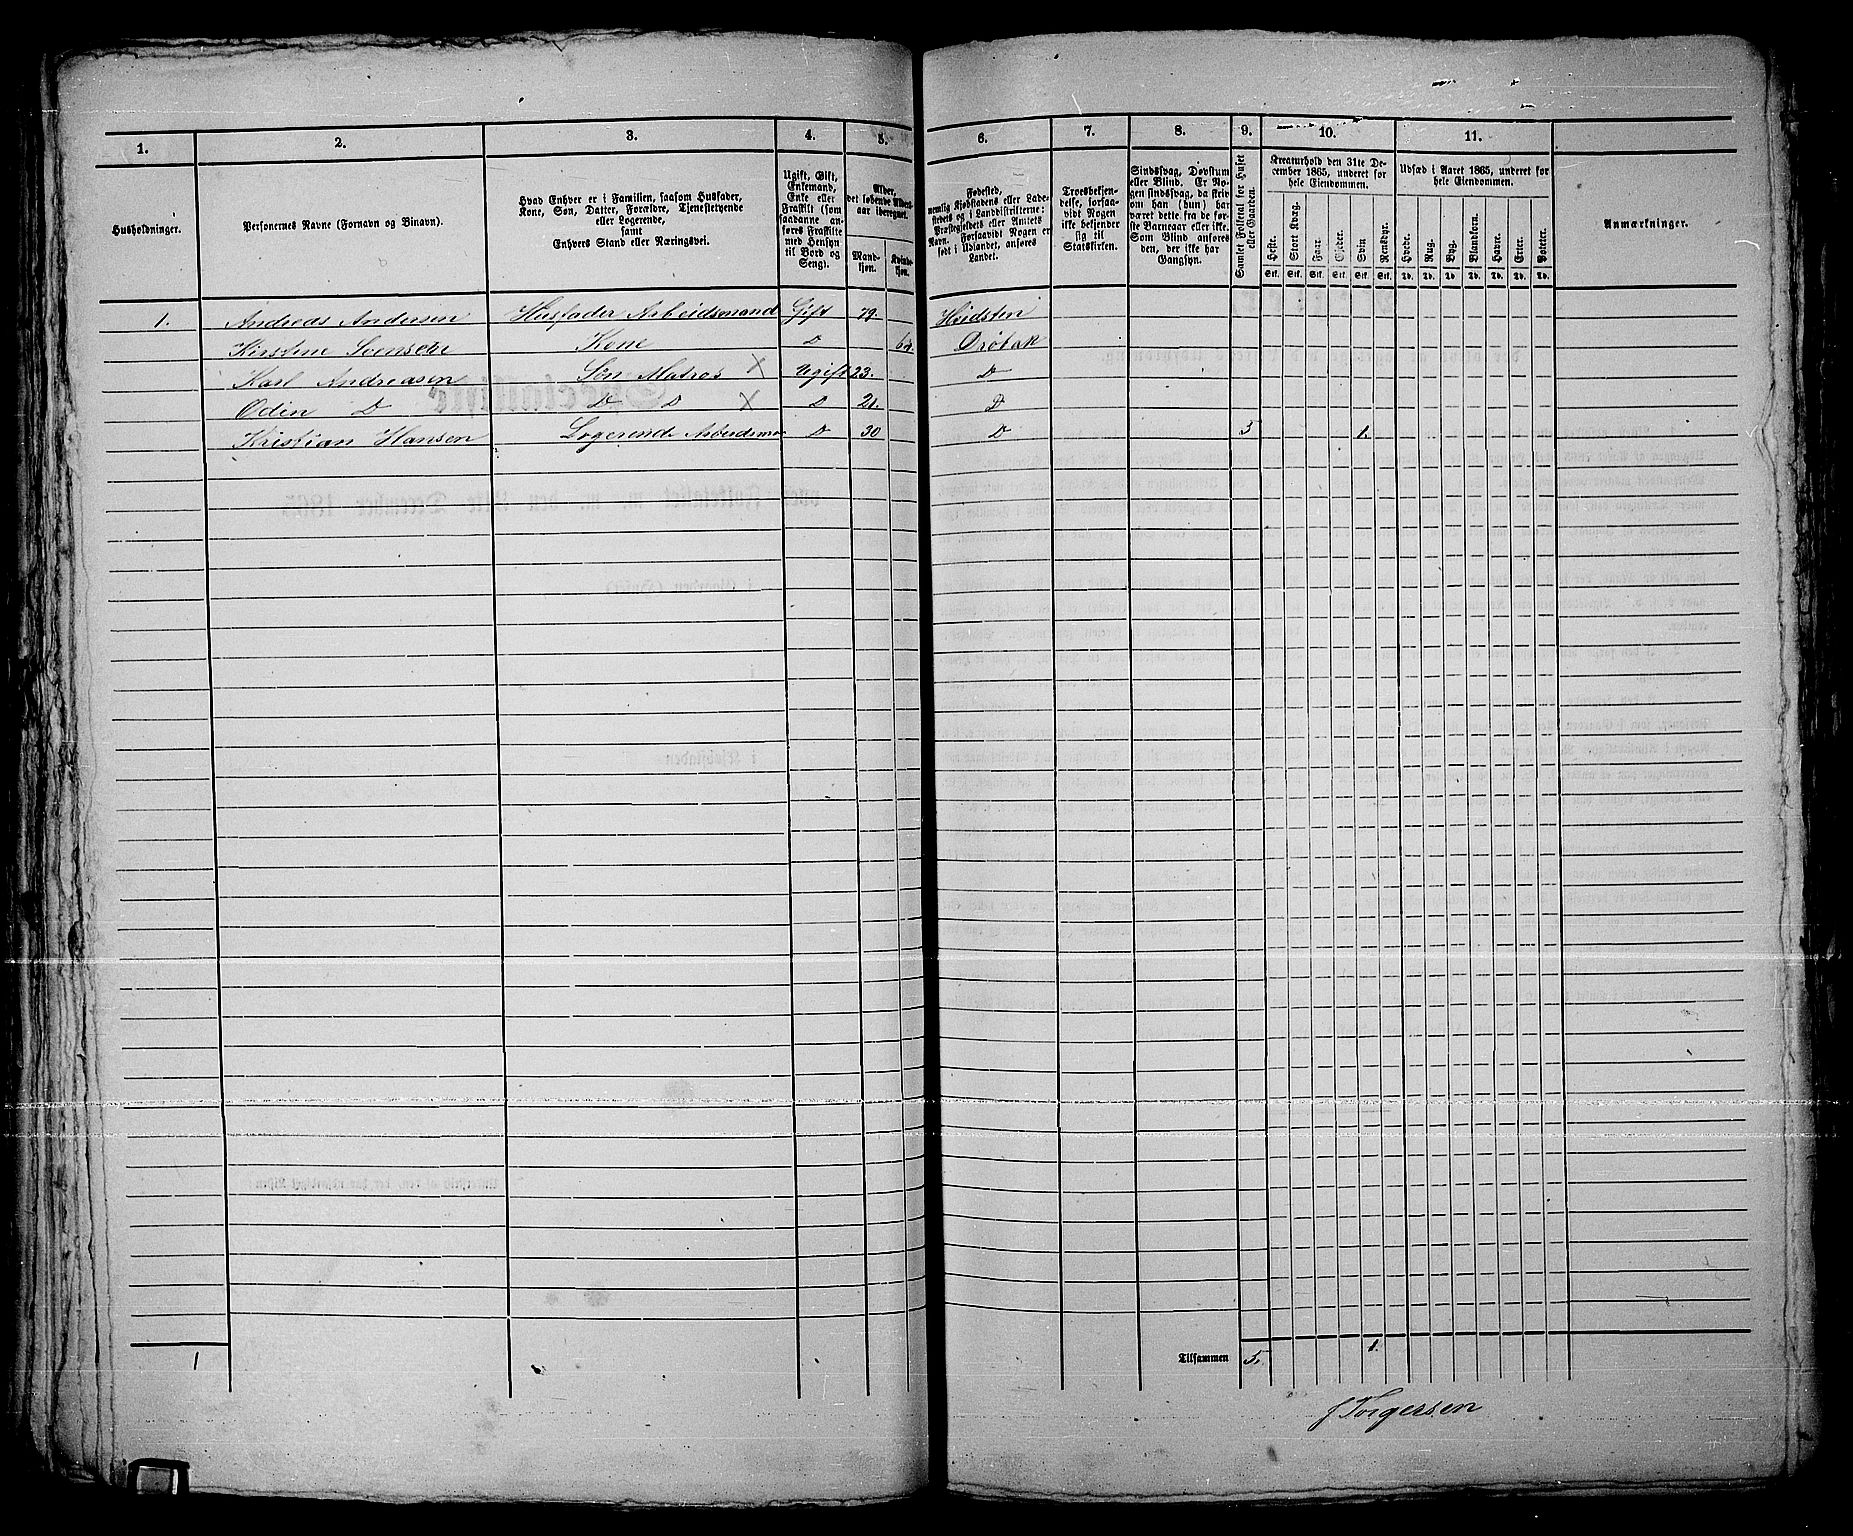 1. 2. 3. 4. 5. 6. 7. 8. 9. 10. 11.
Husholdninger.
Personernes Navne (Fornavn og Binavn).
Hvad Enhver er i Familien, saasom Husfader,
Kone, Søn, Datter, Forældre, Tjenestetyende
eller Logerende,
samt
Enhvers Stand eller Næringsvei.
Ugift, Gift,
Enkemand,
Enke eller
Fraskilt (som
saadanne an-
føres Fraskilte
med Hensyn
til Bord og
Seng).
Alder,
det løbende Alders-
aar iberegnet.
Mand-
kjøn.
Kvinde-
kjøn.
Fødested,
nemlig Kjøbstadens eller Lade-
stedets og i Landdistrikterne:
Præstegjeldets eller Amtets
Navn. Forsaavidt Nogen er
født i Udlandet, anføres
Landet.
Troesbekjen-
delse, forsaa-
vidt Nogen
ikke bekjender
sig til
Statskirken.
Sindssvag, Døvstum
eller Blind. Er No-
gen sindssvag, da skriv
om han (hun) har
været dette fra de før-
ste Barneaar eller ikke.
Som Blind anføres
den, der ikke har
Gangsyn.
Samlet Folketal for Huset
eller Gaarden.
Kreaturhold den 31te De-
cember 1865, underet for
hele Eiendommen.
Heste. Stort Kvæg. Faar. Gjeder. Svin Rensdyr.
Stk. Stk. Stk. Stk. Stk. Stk.
Udsæd i Aaret 1865, underet for
hele Eiendommen.
Hvede. Rug. Byg. Blandkorn. Havre. Erter. Poteter.
Td. Td. Td. Td. Td. Td. Td.
Anmærkninger.
1. Andreas Andersen Husfader Arbeidsmand Gift 79. Hvidsten
Kirstine Svensen Kone D Drøbak
Karl Andreasen Søn Matros X Ugift 23. D
Odin D D D X D 21. D
Kristian Hansen Logerende Arbeidsm D 30 D 5 1.
1 Tilsammen 5. 1.
J Torgersen